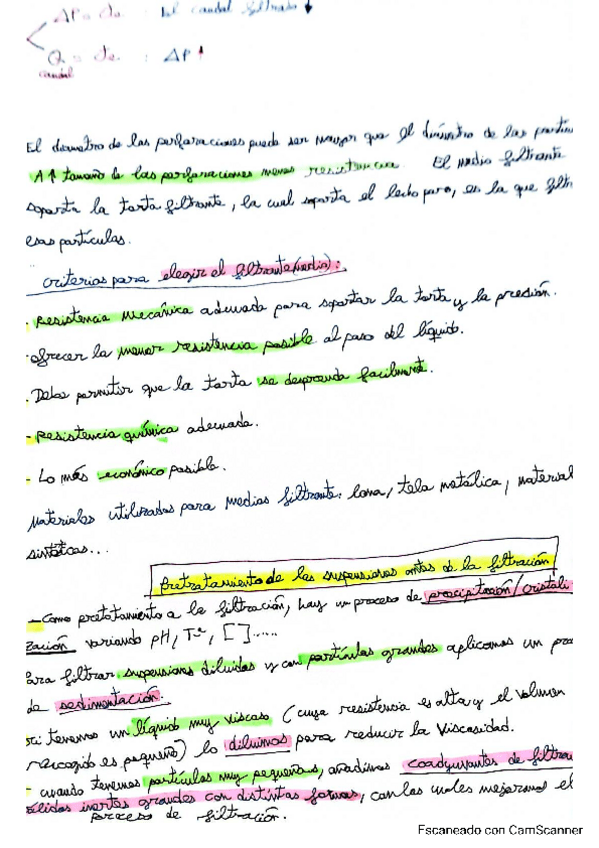 ΔP = cte : el caudal filtrado ↓
Q = cte : ΔP ↑
caudal
El diametro de las perforaciones puede ser mayor que el diámetro de las
A ↑ tamaño de las perforaciones menos resistencia. El medio filtrante
soporta la tarta filtrante, la cual soporta el lecho poro, es la que
esas partículas.
criterios para elegir el filtrante(medio):
· Resistencia mecánica adecuada para soportar la tarta y la presión.
· ofrecer la menor resistencia posible al paso del líquido.
· Debe permitir que la tarta se desprenda facilmente.
- Resistencia química adecuada.
- Lo más económico posible.
Materiales utilizados para medios filtrante: lona, tela metálica, material
sintéticos...
Pretratamiento de las suspensiones antes de la filtración
- Como pretratamiento a la filtración, hay un proceso de precipitación/cristali
zación variando pH, Tª, [ ].....
Para filtrar suspensiones diluidas y con partículas grandes aplicamos un pro
de sedimentación.
si tenemos un líquido muy viscoso (cuya resistencia es alta y el volumen
recogido es pequeño) lo diluimos para reducir la viscosidad.
- cuando tenemos partículas muy pequeñas, añadimos coadyuvantes de filtra
sólidos inertes grandes con distintas formas, con las cuales mejoramos el
proceso de filtración.
Escaneado con CamScanner